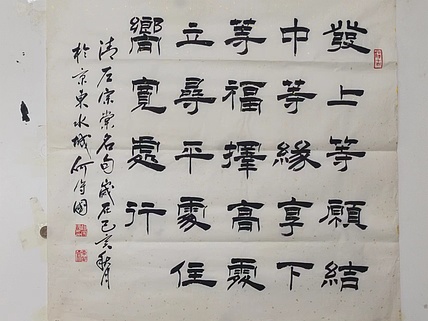 發上等願結
中等緣享下
等福擇高處
立尋平處住
嚮寬處行
清左宗棠名句歲在己亥秋月
於京東水城何守國